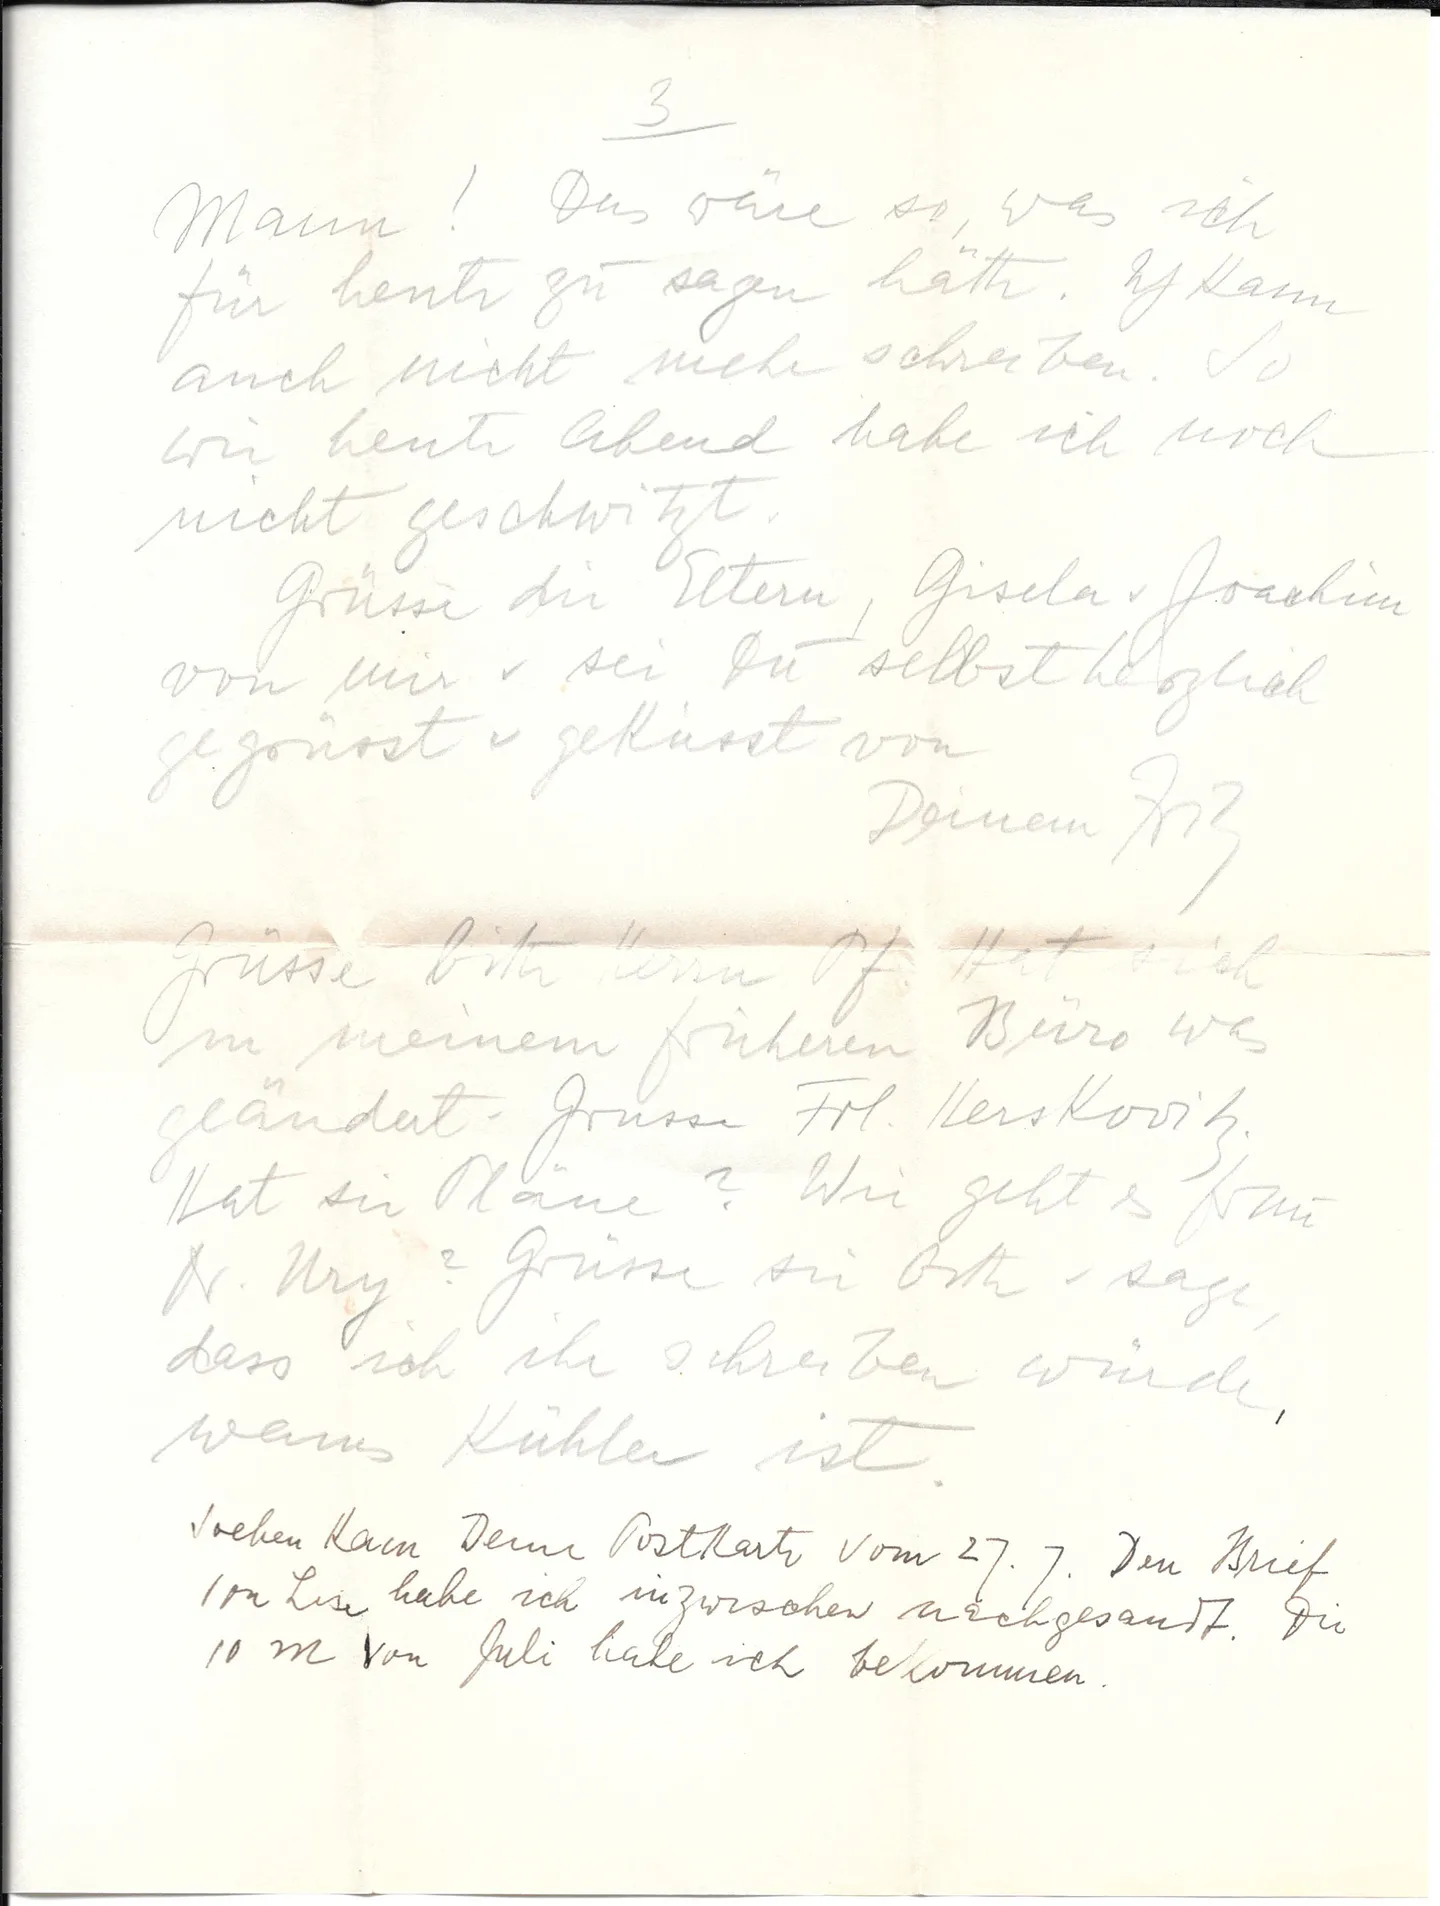 3
Mann! Das wäre so, was ich
für heute zu sagen hätte. Ich kann
auch nicht mehr schreiben. So
wie heute Abend habe ich noch
nicht geschwitzt.
Grüsse die Eltern, Gisela & Joachim
von mir & sei Du selbst herzlich
gegrüsst & geküsst von
Deinem Fritz
Grüsse bitte Herrn Pf. Hat sich
in meinem früheren Büro was
geändert. Grüsse Frl. Herskovitz.
Hat sie Pläne? Wie geht es Frau
Dr. Ury? Grüsse sie bitte & sage,
dass ich ihr schreiben würde,
wenns kühler ist.
Soeben kam Deine Postkarte vom 27.7. Den Brief
von Lise habe ich inzwischen nachgesandt. Die
10 M von Juli habe ich bekommen.